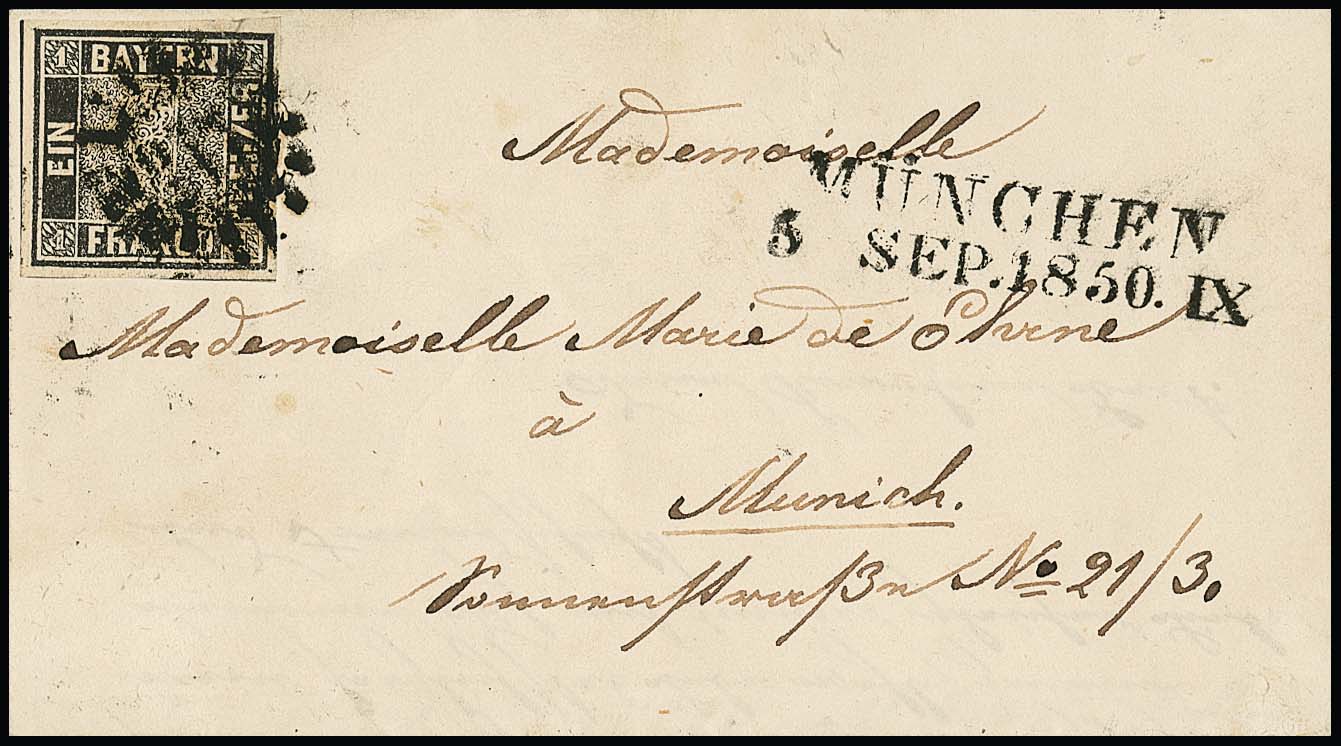 1 BAYERN 1
EIN
KREUZER
1 FRANCO
Mademoiselle
MÜNCHEN
5 SEP. 1850. IX
Mademoiselle Marie de Ohrne
à
Munich.
Sonnenstraße No 21/3.